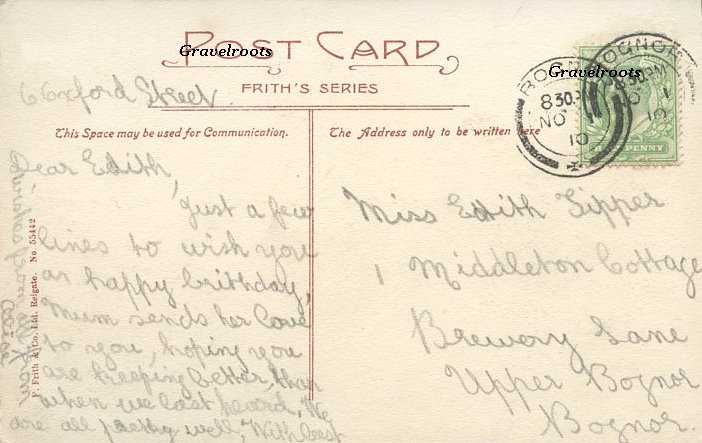 POST CARD
Gravelroots
Gravelroots
FRITH'S SERIES
This Space may be used for Communication.
The Address only to be written here
BOGNOR
8 30 PM
NO 1
10
BOGNOR
8 30 PM
NO 1
10
HALFPENNY
6 Oxford Street
Dear Edith,
just a few
lines to wish you
an happy birthday,
Mum sends her love
to you, hoping you
are keeping better, than
when we last heard, We
are all pretty well, With best
from
F. Frith & Co. Ltd. Reigate. No 55442
Miss Edith Tipper
1 Middleton Cottage
Brewery Lane
Upper Bognor
Bognor.